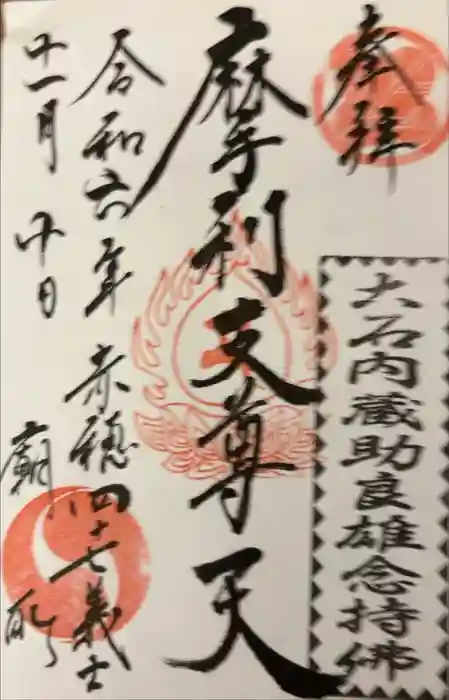 奉拝
大石内蔵助良雄念持佛
摩利支尊天
令和六年 赤穂四十七義士
十一月 十日 廟所